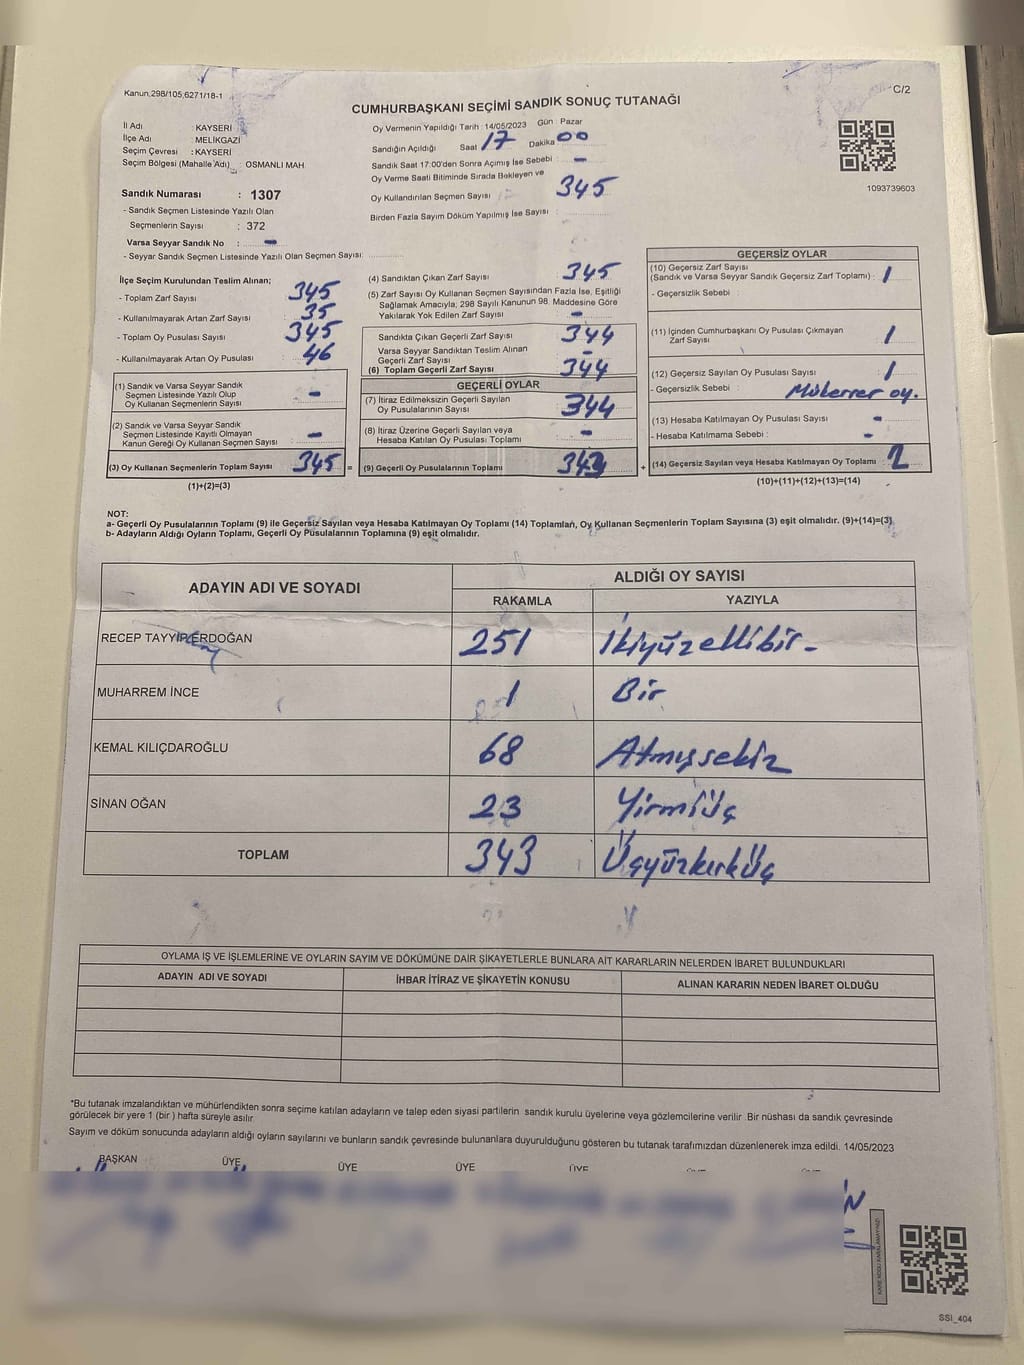 Kanun,298/105,6271/18-1
C/2
CUMHURBAŞKANI SEÇİMİ SANDIK SONUÇ TUTANAĞI
İl Adı : KAYSERİ
İlçe Adı : MELİKGAZİ
Seçim Çevresi : KAYSERİ
Seçim Bölgesi (Mahalle Adı) : OSMANLI MAH.
Sandık Numarası : 1307
- Sandık Seçmen Listesinde Yazılı Olan
Seçmenlerin Sayısı : 372
Varsa Seyyar Sandık No : -
- Seyyar Sandık Listesinde Yazılı Olan Seçmen Sayısı:
Oy Vermenin Yapıldığı Tarih : 14/05/2023 Gün : Pazar
Sandığın Açıldığı Saat 17 Dakika 00
Sandık Saat 17:00'den Sonra Açımış İse Sebebi : -
Oy Verme Saati Bitiminde Sırada Bekleyen ve
Oy Kullandırılan Seçmen Sayısı 345
Birden Fazla Sayım Döküm Yapılmış İse Sayısı :
1093739603
İlçe Seçim Kurulundan Teslim Alınan;
- Toplam Zarf Sayısı : 345
- Kullanılmayarak Artan Zarf Sayısı : 35
- Toplam Oy Pusulası Sayısı : 345
- Kullanılmayarak Artan Oy Pusulası : 46
(1) Sandık ve Varsa Seyyar Sandık
Seçmen Listesinde Yazılı Olup
Oy Kullanan Seçmenlerin Sayısı : -
(2) Sandık ve Varsa Seyyar Sandık
Seçmen Listesinde Kayıtlı Olmayan
Kanun Gereği Oy Kullanan Seçmen Sayısı : -
(3) Oy Kullanan Seçmenlerin Toplam Sayısı 345 =
(1)+(2)=(3)
(4) Sandıktan Çıkan Zarf Sayısı : 345
(5) Zarf Sayısı Oy Kullanan Seçmen Sayısından Fazla İse, Eşitliği
Sağlamak Amacıyla; 298 Sayılı Kanunun 98. Maddesine Göre
Yakılarak Yok Edilen Zarf Sayısı : -
Sandıkta Çıkan Geçerli Zarf Sayısı : 344
Varsa Seyyar Sandıktan Teslim Alınan
Geçerli Zarf Sayısı : -
(6) Toplam Geçerli Zarf Sayısı : 344
GEÇERLİ OYLAR
(7) İtiraz Edilmeksizin Geçerli Sayılan
Oy Pusulalarının Sayısı : 344
(8) İtiraz Üzerine Geçerli Sayılan veya
Hesaba Katılan Oy Pusulası Toplamı : -
(9) Geçerli Oy Pusulalarının Toplamı : 343 +
GEÇERSİZ OYLAR
(10) Geçersiz Zarf Sayısı
(Sandık ve Varsa Seyyar Sandık Geçersiz Zarf Toplamı) : 1
- Geçersizlik Sebebi :
(11) İçinden Cumhurbaşkanı Oy Pusulası Çıkmayan
Zarf Sayısı : 1
(12) Geçersiz Sayılan Oy Pusulası Sayısı : 1
- Geçersizlik Sebebi : Mükerrer oy.
(13) Hesaba Katılmayan Oy Pusulası Sayısı : -
- Hesaba Katılmama Sebebi : -
(14) Geçersiz Sayılan veya Hesaba Katılmayan Oy Toplamı : 2
(10)+(11)+(12)+(13)=(14)
NOT:
a- Geçerli Oy Pusulalarının Toplamı (9) ile Geçersiz Sayılan veya Hesaba Katılmayan Oy Toplamı (14) Toplamları, Oy Kullanan Seçmenlerin Toplam Sayısına (3) eşit olmalıdır. (9)+(14)=(3)
b- Adayların Aldığı Oyların Toplamı, Geçerli Oy Pusulalarının Toplamına (9) eşit olmalıdır.
ADAYIN ADI VE SOYADI
ALDIĞI OY SAYISI
RAKAMLA YAZIYLA
RECEP TAYYİP ERDOĞAN 251 İkiyüzellibir-
MUHARREM İNCE 1 Bir
KEMAL KILIÇDAROĞLU 68 Atmışsekiz
SİNAN OĞAN 23 Yirmiüç
TOPLAM 343 Üçyüzkırküç
OYLAMA İŞ VE İŞLEMLERİNE VE OYLARIN SAYIM VE DÖKÜMÜNE DAİR ŞİKAYETLERLE BUNLARA AİT KARARLARIN NELERDEN İBARET BULUNDUKLARI
ADAYIN ADI VE SOYADI İHBAR İTİRAZ VE ŞİKAYETİN KONUSU ALINAN KARARIN NEDEN İBARET OLDUĞU
*Bu tutanak imzalandıktan ve mühürlendikten sonra seçime katılan adayların ve talep eden siyasi partilerin sandık kurulu üyelerine veya gözlemcilerine verilir. Bir nüshası da sandık çevresinde
görülecek bir yere 1 (bir) hafta süreyle asılır.
Sayım ve döküm sonucunda adayların aldığı oyların sayılarını ve bunların sandık çevresinde bulunanlara duyurulduğunu gösteren bu tutanak tarafımızdan düzenlenerek imza edildi. 14/05/2023
BAŞKAN ÜYE ÜYE ÜYE ÜYE
KARE KODU KARALAMAYINIZ!
SSI_404